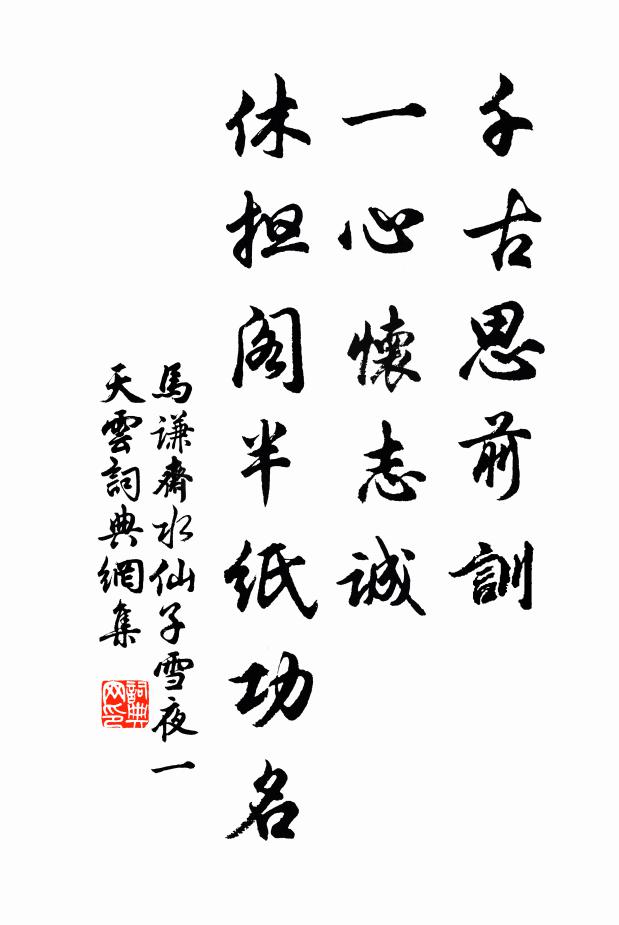 千古思前訓
一心懷志誠
休担阁半紙功名
馬谦齋水仙子雪夜一
天雲詞典網集
詞典网印